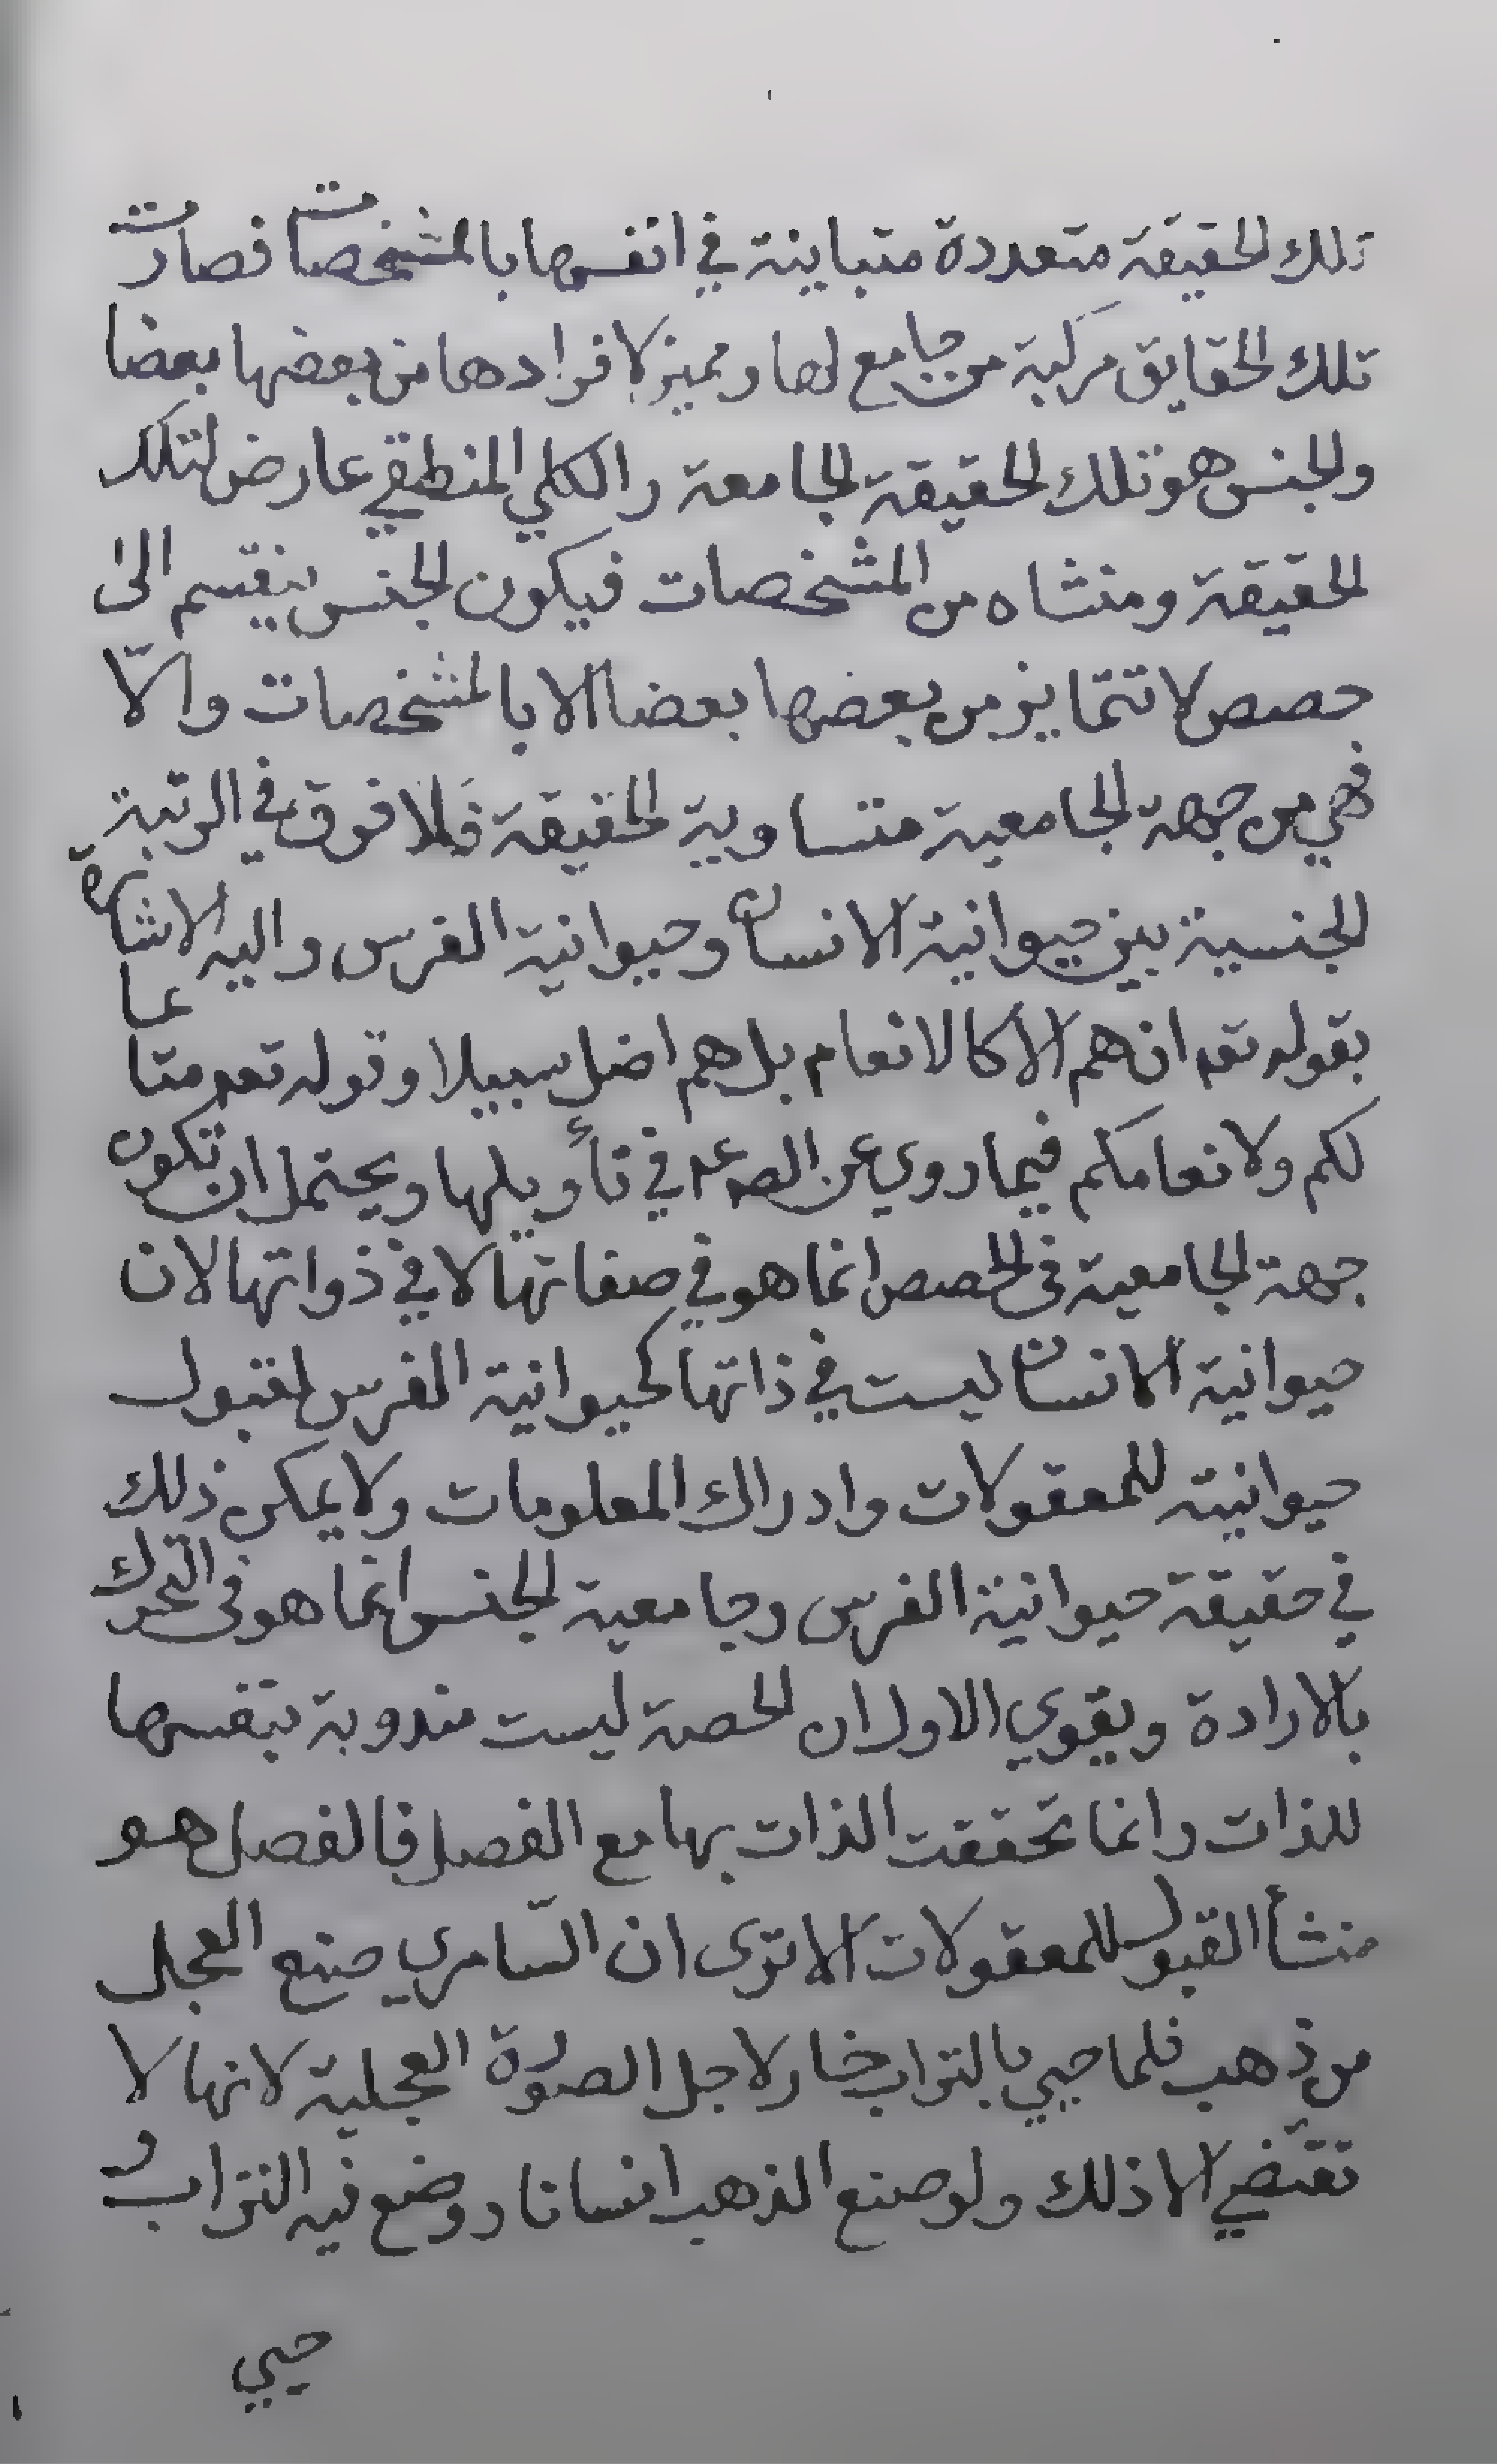 تلك الحقيقة متعددة متباينة في انفسها بالمشخصات فصارت
تلك الحقايق مركبة من جامع لها ومميز لافرادها من بعضها بعضا
والجنس هو تلك الحقيقة الجامعة والكلي المنطقي عارض لتلك
الحقيقة ومنشاه من المشخصات فيكون الجنس ينقسم الى
حصص لا تتمايز من بعضها بعضا الا بالمشخصات والّا
فهي من جهة الجامعية متساوية الحقيقة فلا فرق في الرتبة
الجنسية بين حيوانية الانسان وحيوانية الفرس واليه الاشارة
بقوله تعه ان هم الا كالانعام بل هم اضل سبيلا وقوله تعه متاعا
لكم ولانعامكم فيما روي عن الصه عه في تأويلها ويحتمل ان تكون
جهة الجامعية في الحصص انما هو في صفاتها لا في ذواتها لان
حيوانية الانسان ليست في ذاتها كحيوانية الفرس لقبول
حيوانيته للمعقولات وادراك المعلومات ولا يمكن ذلك
في حقيقة حيوانية الفرس وجامعية الجنس انما هو في التحرك
بالارادة ويقوي الاول ان الحصة ليست مندوبة بنفسها
للذات وانما تحققت الذات بها مع الفصل فالفصل هو
منشأ القبول للمعقولات الا ترى ان السّامري صنع العجل
من ذهب فلما حيي بالتراب خار لاجل الصورة العجلية لانها لا
تقتضي الا ذلك ولو صنع الذهب انسانا ووضع فيه التراب و
حيي